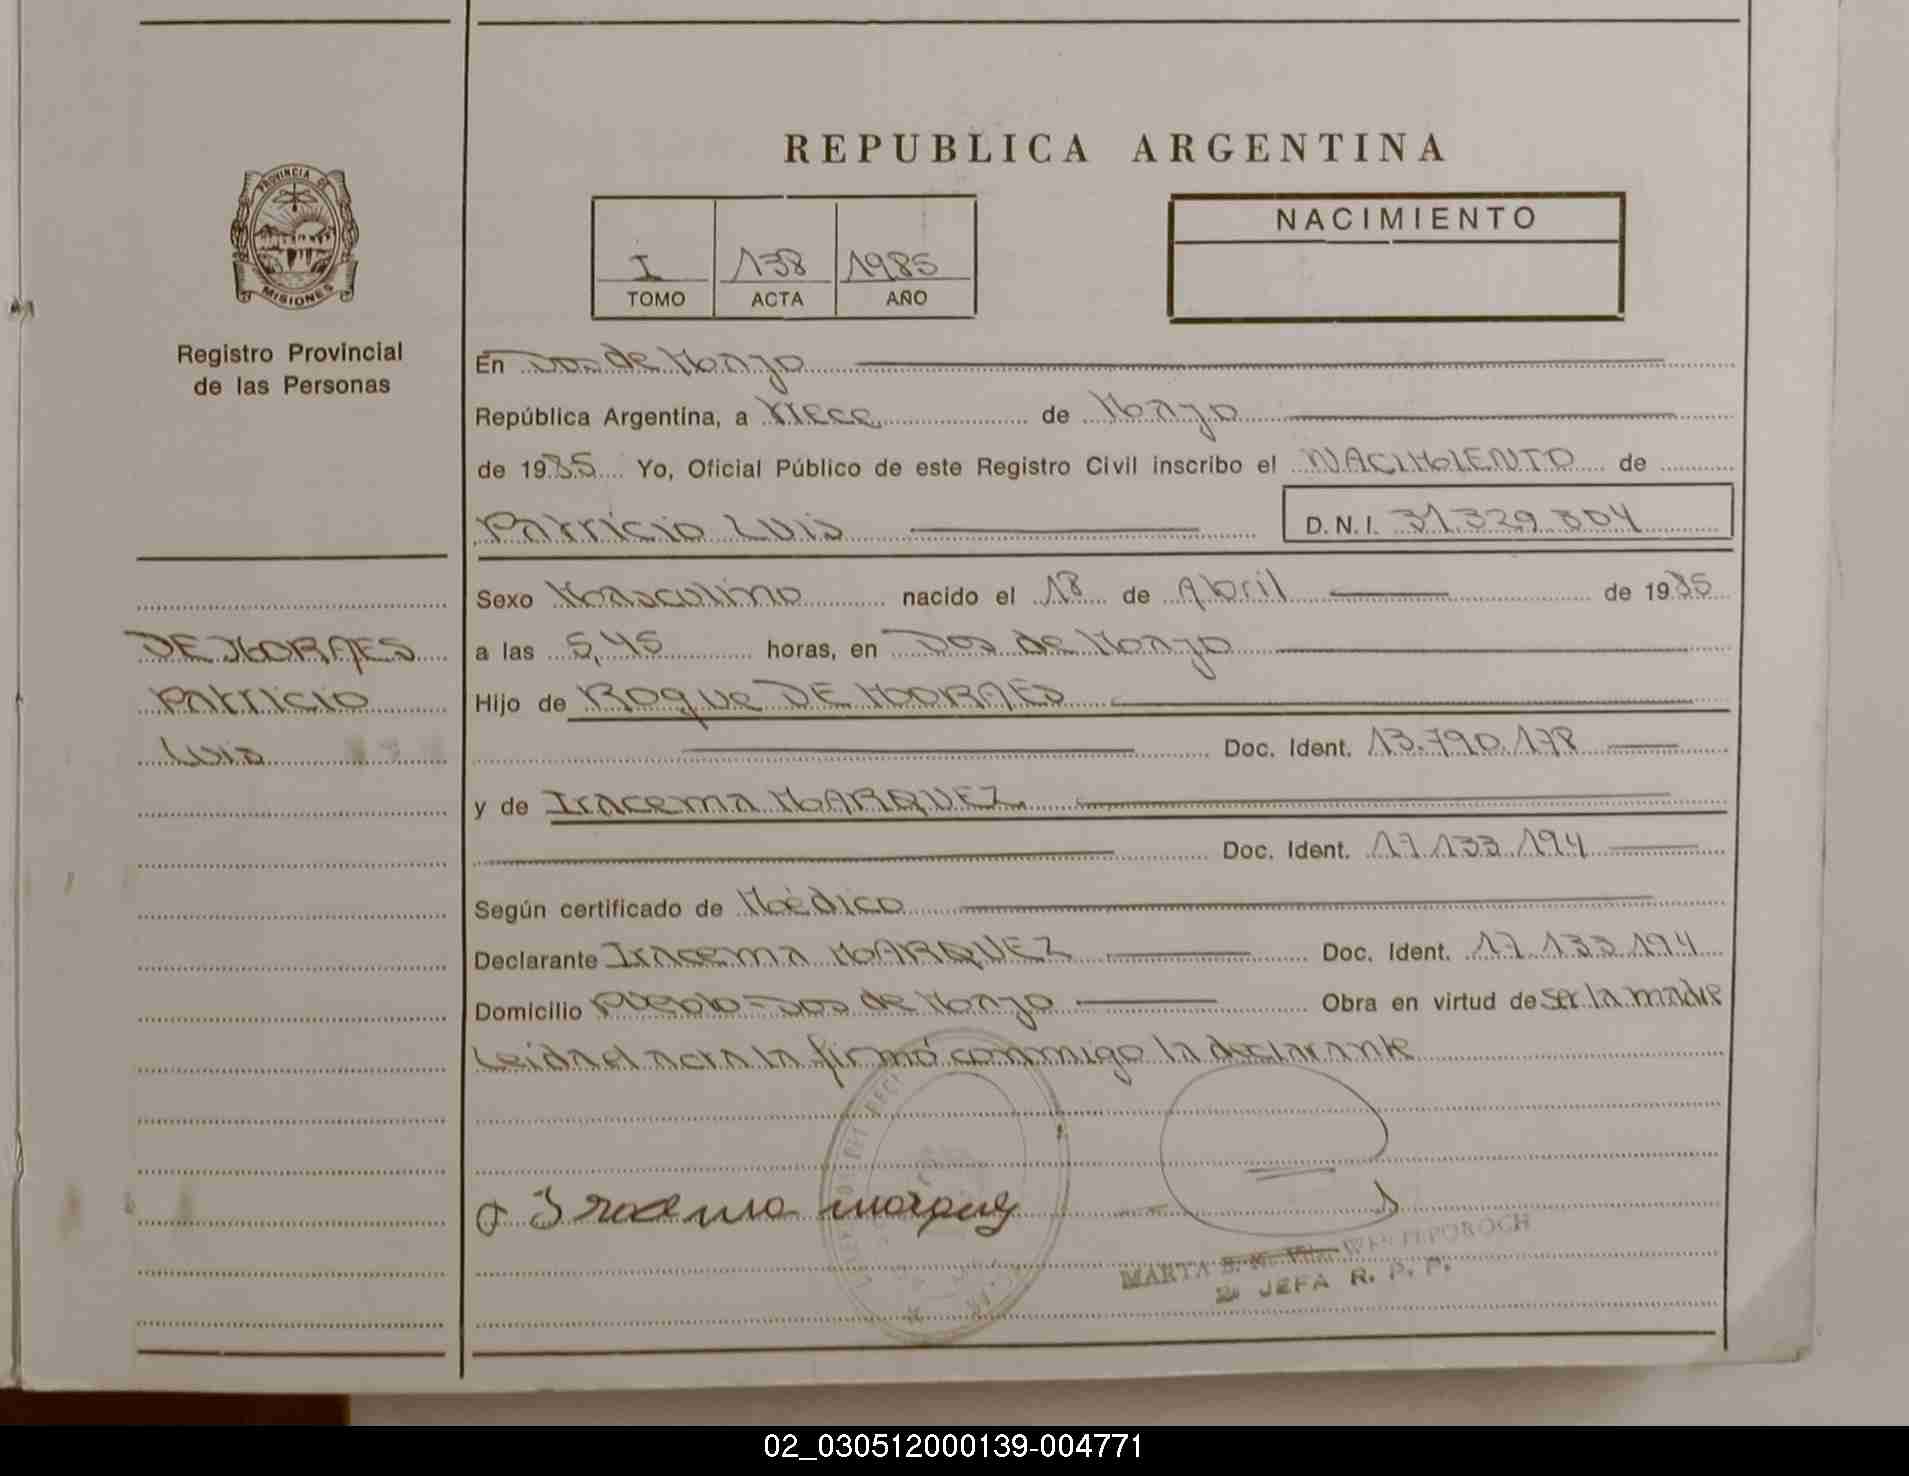 REPUBLICA ARGENTINA
PROVINCIA DE
MISIONES
Registro Provincial
de las Personas
I 138 1985
TOMO ACTA AÑO
NACIMIENTO
En Dos de Mayo
República Argentina, a trece de Mayo
de 1985 Yo, Oficial Público de este Registro Civil inscribo el NACIMIENTO de
Patricio Luis D.N.I. 31.329.804
DE MORAES
Patricio
Luis
Sexo Masculino nacido el 18 de Abril de 1985
a las 5,45 horas, en Dos de Mayo
Hijo de Roque DE MORAES
Doc. Ident. 13.790.178
y de Iracema MARQUEZ
Doc. Ident. 17.133.194
Según certificado de Médico
Declarante Iracema MARQUEZ Doc. Ident. 17.133.194
Domicilio Pueblo-Dos de Mayo Obra en virtud de ser la madre
Leida el acta la firmó conmigo la declarante
Iracema marquez
MARTA
JEFA R. P. P.
02_030512000139-004771